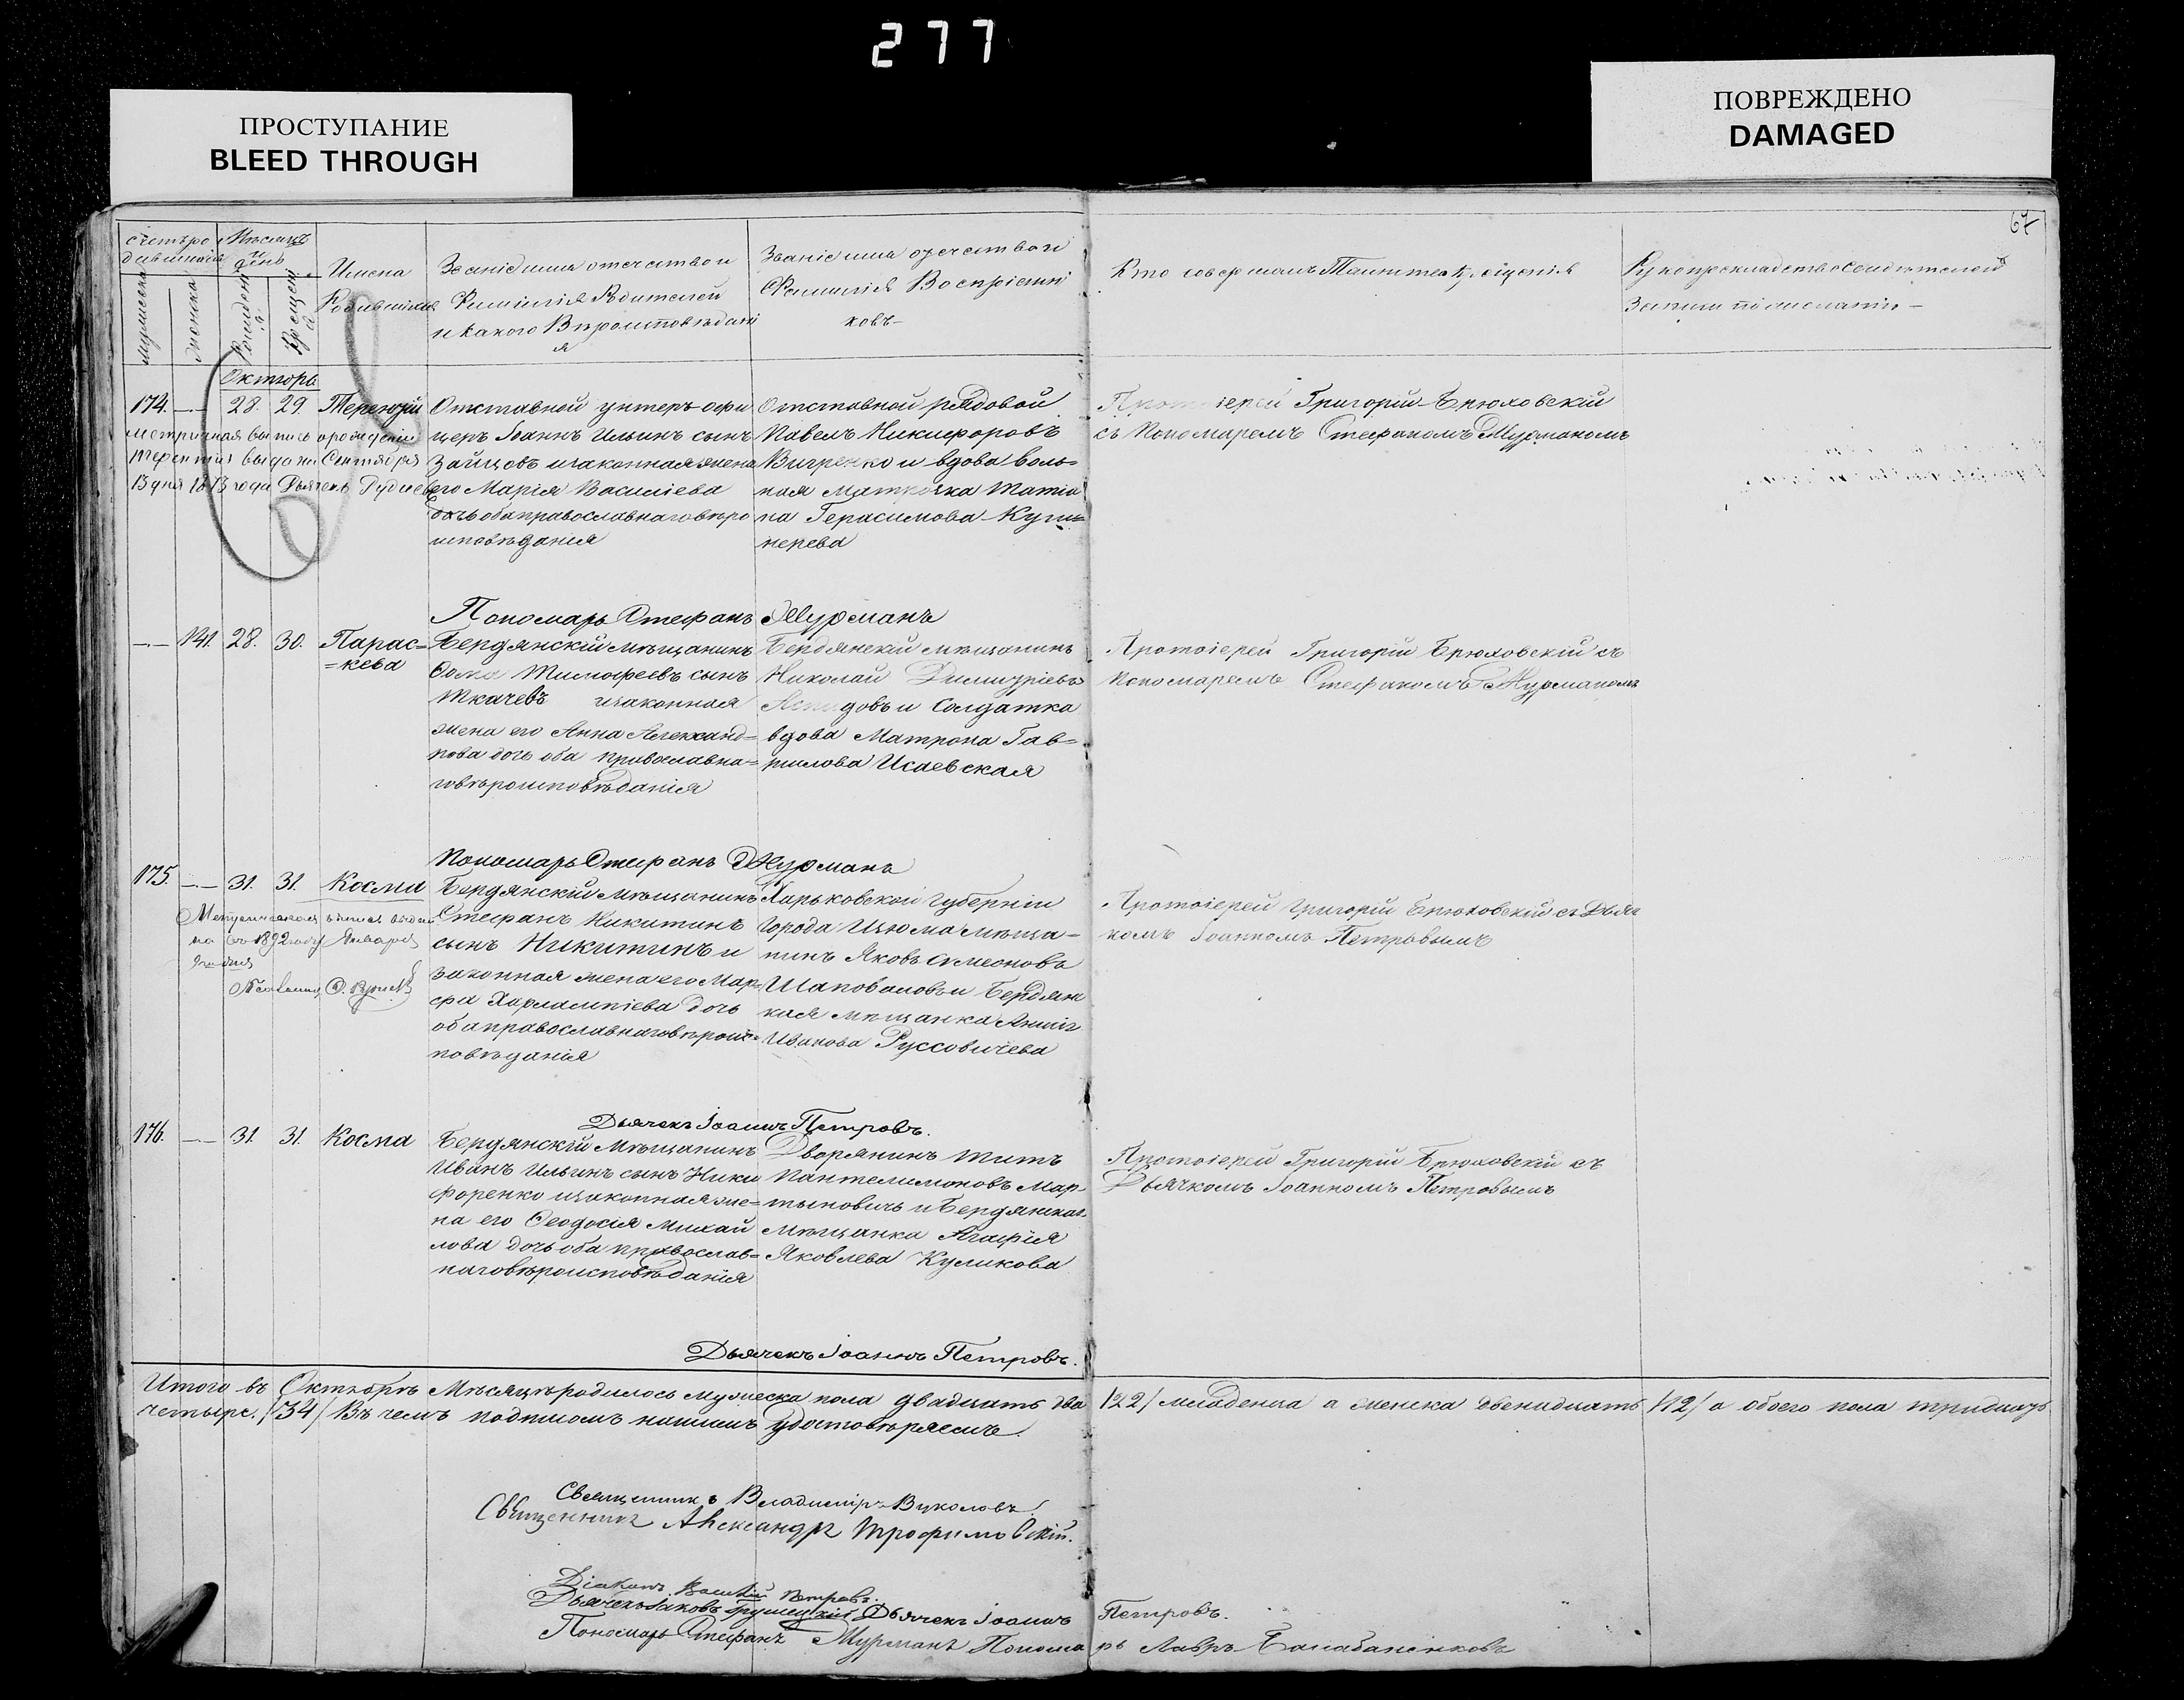 277
ПРОСТУПАНИЕ
BLEED THROUGH
ПОВРЕЖДЕНО
DAMAGED
67
Мѣсяцъ
и
день
мужеска
женска
Имена
Родившихся
Званіе имя отчество и
Фамилія Родителей
и какого Вѣроисповѣдані
я
Званіе имя отчество и
Фамилія Воспріемни
ковъ
Кто совершалъ Таинство Крещенія
Рукоприкладство Свидѣтелей
Записи по желанію
Октябрь
174. 28. 29. Терентій
Метричная выпись о рожденіи
Терентія выдана Сентября
13 дня 1873 года Дьячекъ
Отставной унтеръ офи
церъ Іоаннъ Ильинъ сынъ
Зайцовъ и законная жена
его Марія Василіева
дочь оба православнаго вѣро
исповѣданія
Отставной рядовой
Павелъ Никифоровъ
и вдова воль=
ная Матроска Татіа
на Герасимова Куш=
нерева
Протоіерей Григорій Брюховскій
съ Пономаремъ Стефаномъ Мурманомъ
Пономарь Стефанъ Мурманъ
141. 28. 30. Парас=
=кева
Бердянскій мѣщанинъ
Ѳома Тимофеевъ сынъ
Ткачевъ и законная
жена его Анна Александ=
рова дочь оба православна=
го вѣроисповѣданія
Бердянскій мѣщанинъ
Николай Димитріевъ
и Солдатка
вдова Матрона Гав=
рилова Исаевская
Протоіерей Григорій Брюховскій съ
Пономаремъ Стефаномъ Мурманомъ
Пономарь Стефанъ Мурманъ
175. 31. 31. Косма
на 1892 году Января
Бердянскій мѣщанинъ
Стефанъ Никитинъ
сынъ Никитинъ и
законная жена его Мар=
фа Харлампіева дочь
оба православнаго вѣроис=
повѣданія
Харьковской губерніи
города Изюма мѣща=
нинъ Яковъ Симеоновъ
Шаповаловъ и Бердянс
кая мѣщанка Анна
Иванова Руссовичева
Протоіерей Григорій Брюховскій съ Дьяч
комъ Іоанномъ Петровымъ
Дьячекъ Іоаннъ Петровъ.
176. 31. 31. Косма
Бердянскій мѣщанинъ
Иванъ Ильинъ сынъ Ники
форенко и законная же=
на его Ѳеодосія Михай
лова дочь оба православ=
наго вѣроисповѣданія
Дворянинъ Титъ
Пантелимоновъ Мар=
тыновичъ и Бердянская
мѣщанка Агафія
Яковлева Куликова
Протоіерей Григорій Брюховскій съ
Дьячкомъ Іоанномъ Петровымъ
Дьячекъ Іоаннъ Петровъ.
Итого въ Октябрѣ Мѣсяцѣ родилось мужеска пола двадцать два /22/ младенца а женска двенадцать /12/ а обоего пола тридцать
четыре. /34/ Въ чемъ подписомъ нашимъ удостовѣряемъ.
Священникъ Владиміръ Вуколовъ
Священникъ Александръ Трофимовскій.
Діаконъ Василій Петровъ.
Дьячекъ Іаковъ Дьячекъ Іоаннъ Петровъ.
Пономарь Стефанъ Мурманъ Пономарь Лавръ